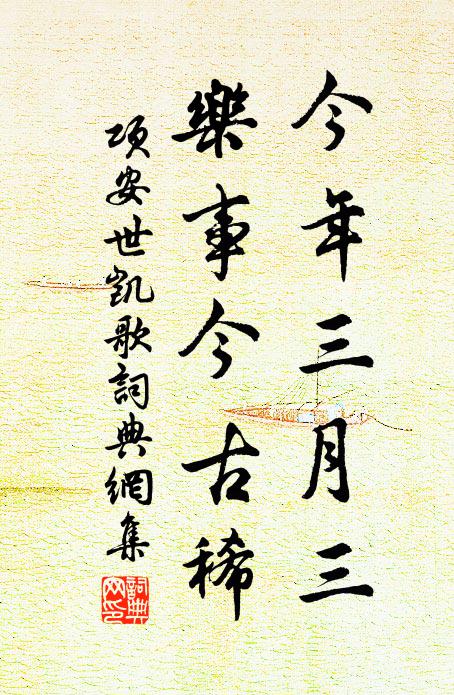 今年三月三
樂事今古稀
項安世凱歌詞典網集
詞典
网印